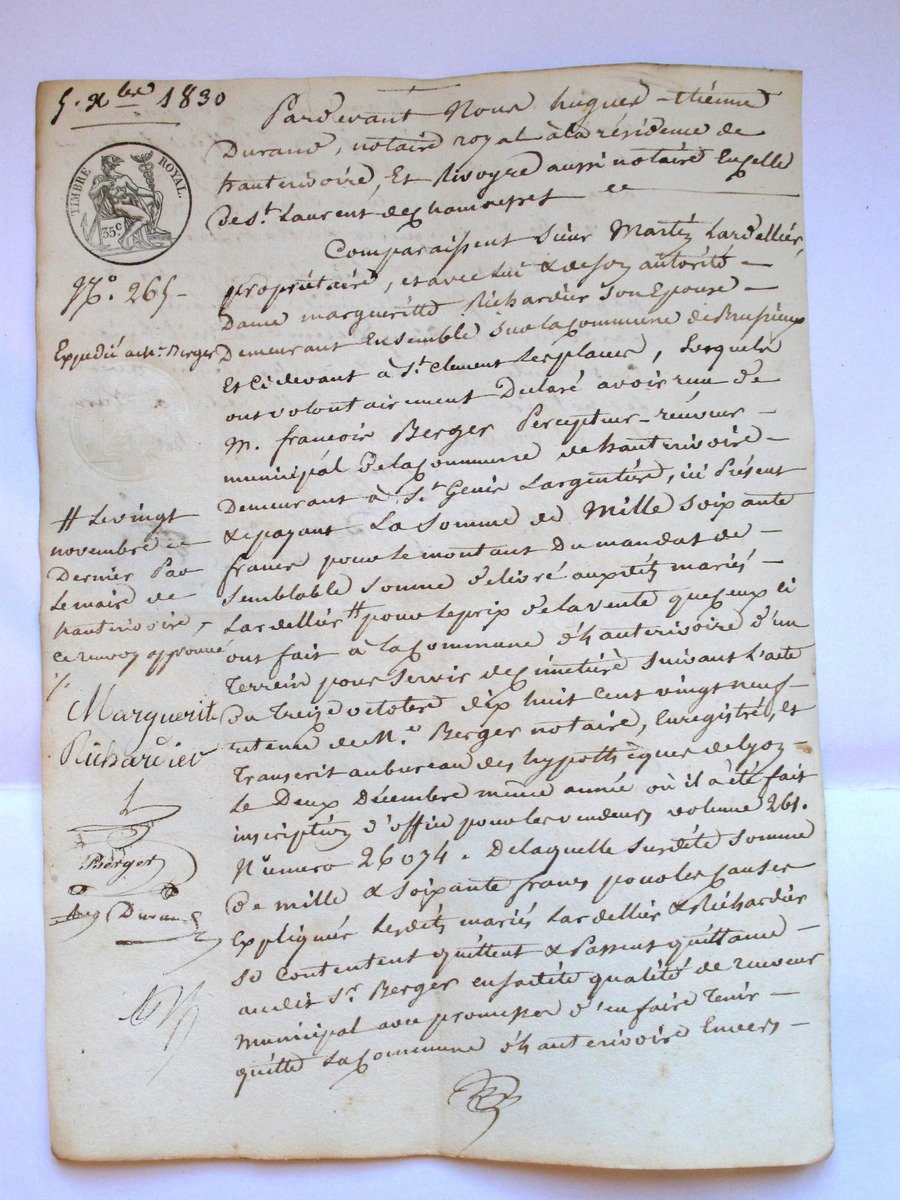 5. Xbre 1830
TIMBRE ROYAL.
35 c
No. 265 -
Expédié à Mr. Berger
Pardevant Nous hugues - étienne
Durand, notaire royal à la résidence de
hauterivoire, Et Rivoyre aussi notaire En celle
de St. Laurent de chamousset
Comparaissent sieur Martin Lardellier
propriétaire, et avec lui & de son autorité -
Dame margueritte Richardier son Epouse -
Demeurant Ensemble sur la Commune de Brussieux
Et Ci devant à St. Clement Les places, Lesquels
ont volontairement Déclaré avoir reçu de
M. francois Berger Percepteur - receveur -
municipal de la Commune de hauterivoire -
Demeurant à St. Genis Largentière, ici Présent
& payant La Somme de Mille soixante
francs pour le montant Du mandat de -
semblable somme délivré auxdits mariés -
Lardellier # pour le prix de la vente que ceux ci
ont fait à la Commune d'hauterivoire d'un
Terrein pour servir de Cimetière suivant L'acte
du treize octobre dix huit cent vingt neuf -
retenu de Me. Berger notaire, Enregistré, Et
Transcrit au bureau des hypothèques de Lyon -
Le Deux Décembre même année où il a été fait
inscription d'office pour les vendeurs volume 261.
Numero 26074. De laquelle susdite somme
de mille & soixante francs pour les causes
Expliquées Lesdits mariés Lardellier & Richardier
se Contentent quittent & Passent quittance -
audit Sr. Berger en sadite qualité de receveur
Municipal avec promesse d'en faire Tenir -
quitte La Commune d'hauterivoire Envers -
# Le vingt
novembre
Dernier Par
Le maire de
hauterivoire,
ce renvoy approuvé
Marguerite
Richardier
Berger
Durand